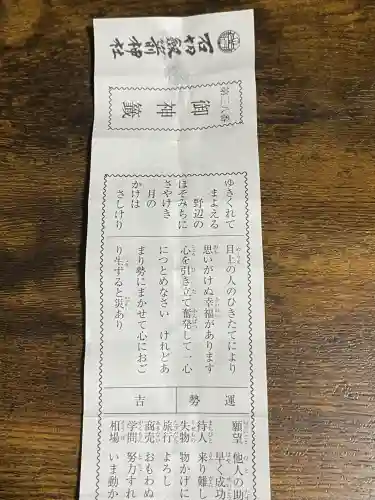 石切劔箭神社
第二八番
御神籤
ゆきくれて
まよえる
野辺の
ほそみちに
さやけき
月の
かげは
さしけり
目上の人のひきたてにより
思いがけぬ幸福があります
心を引き立て奮発して一心
につとめなさい けれどあ
まり勢にまかせて心におご
り生ずると災あり
運勢 吉
願望 他人の助
早く成功
待人 来り難
失物 物かげに
旅行 よろし
商売 おもわぬ
学問 努力すれ
相場 いま動か